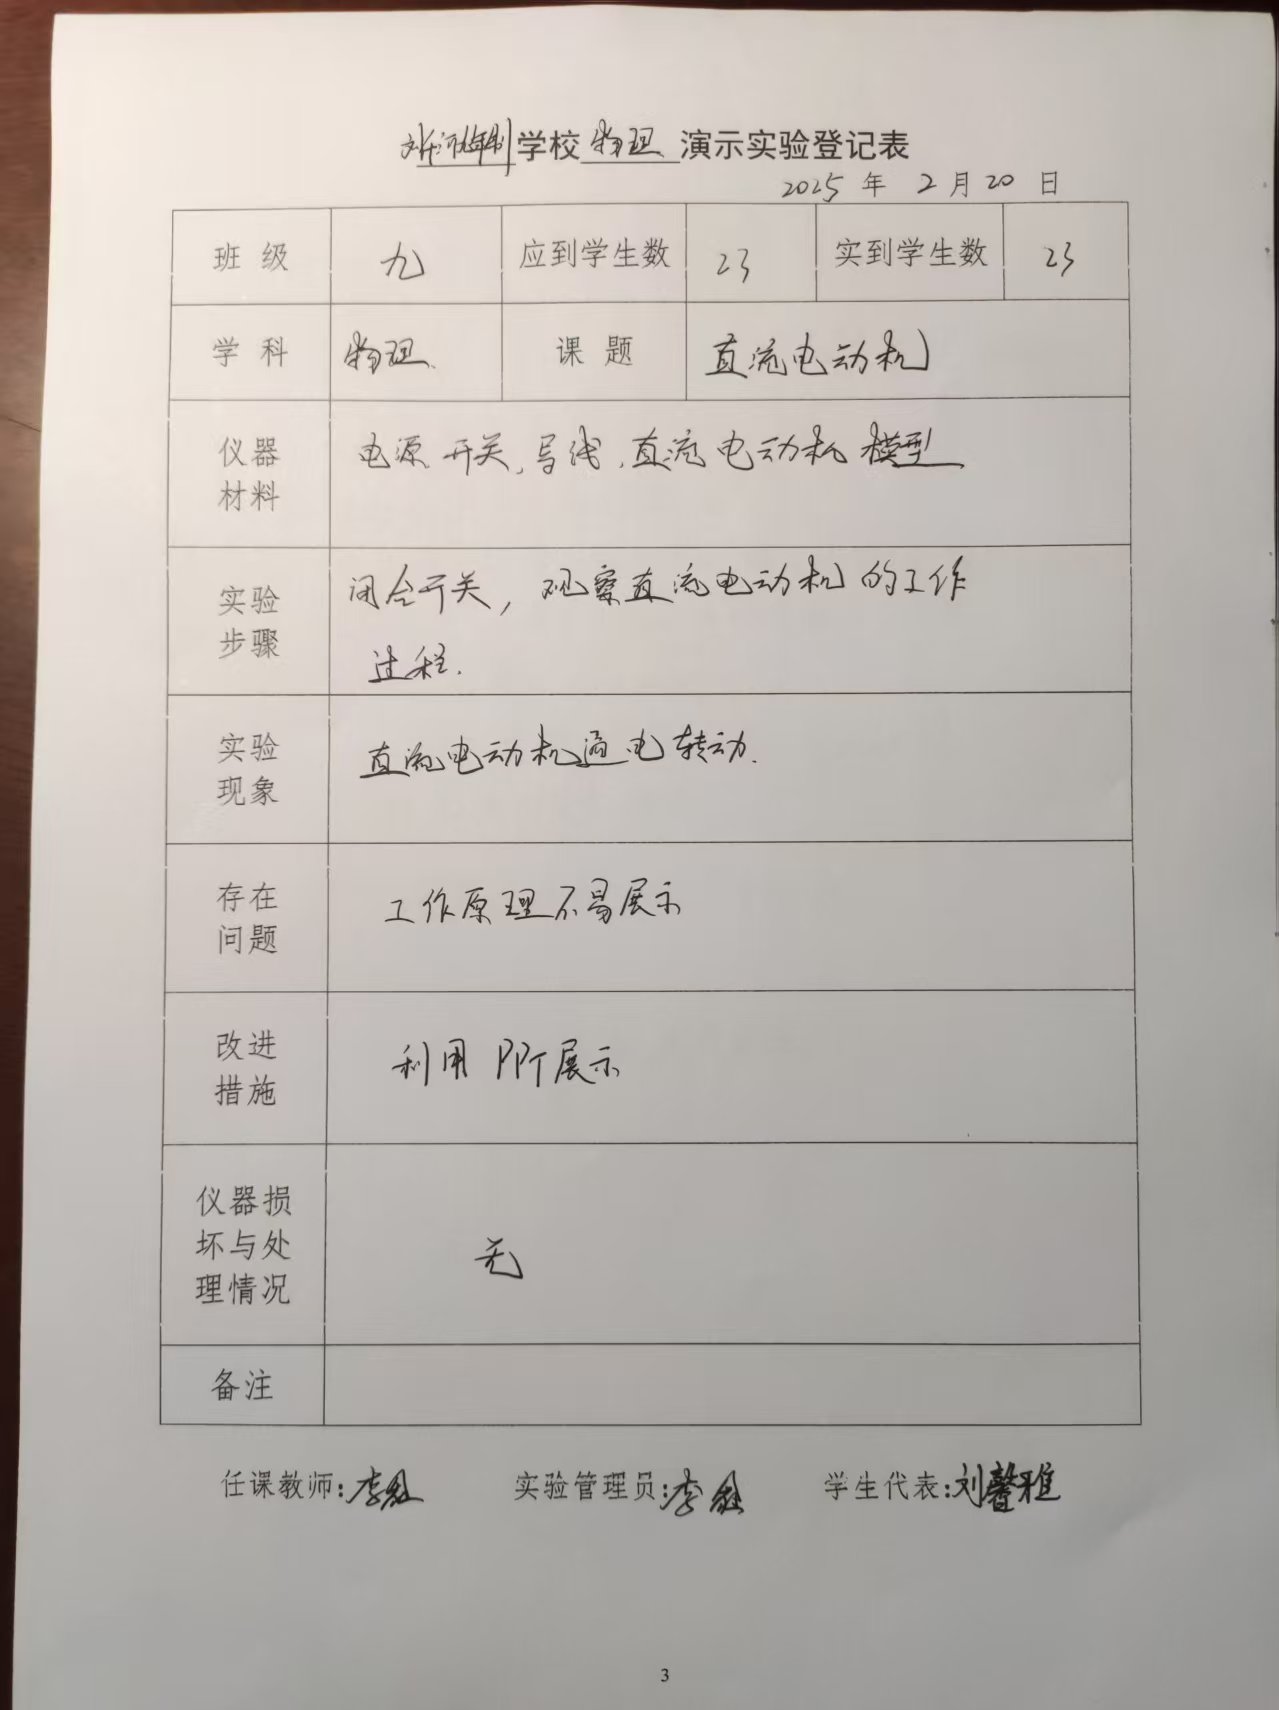 学校 物理 演示实验登记表
2025 年 2 月 20 日
班 级 九 应到学生数 23 实到学生数 23
学 科 物理 课 题 直流电动机
仪器 电源、开关、导线、直流电动机模型
材料
实验 闭合开关，观察直流电动机的工作
步骤 过程.
实验 直流电动机通电转动.
现象
存在 工作原理不易展示
问题
改进 利用 PPT展示
措施
仪器损
坏与处 无
理情况
备注
任课教师:李 实验管理员:李 学生代表:刘馨雅
3